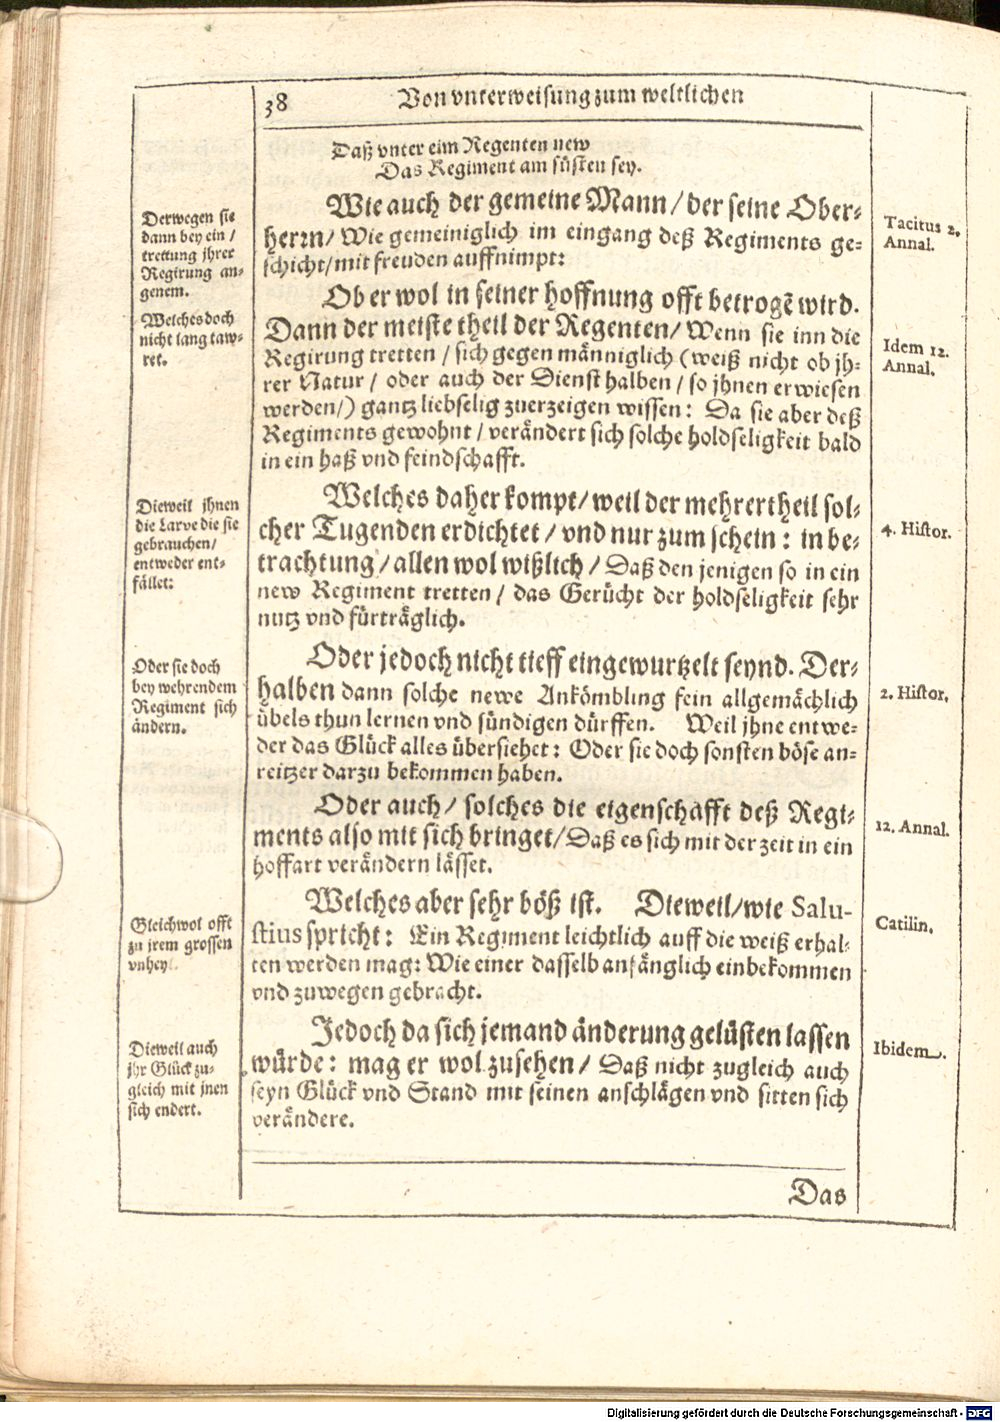 38 Von vnterweisung zum weltlichen
Daß vnter eim Regenten new
Das Regiment am süsten sey.
Wie auch der gemeine Mann / der seine Ober-
herrn / Wie gemeiniglich im eingang deß Regiments ge-
schicht / mit freuden auffnimpt:
Derwegen sie
dann bey ein /
trettung jhrer
Regirung an-
genem.
Tacitus 2.
Annal.
Ob er wol in seiner hoffnung offt betrogē wird.
Dann der meiste theil der Regenten / Wenn sie inn die
Regirung tretten / sich gegen männiglich (weiß nicht ob jh-
rer Natur / oder auch der Dienst halben / so jhnen erwiesen
werden /) gantz liebselig zuerzeigen wissen: Da sie aber deß
Regiments gewohnt / verändert sich solche holdseligkeit bald
in ein haß vnd feindschafft.
Welches doch
nicht lang taw-
ret.
Idem 12.
Annal.
Welches daher kompt / weil der mehrertheil sol-
cher Tugenden erdichtet / vnd nur zum schein: in be-
trachtung / allen wol wißlich / Daß den jenigen so in ein
new Regiment tretten / das Gerücht der holdseligkeit sehr
nutz vnd fürträglich.
Dieweil jhnen
die Larve die sie
gebrauchen /
entweder ent-
fället:
4. Histor.
Oder jedoch nicht tieff eingewurtzelt seynd. Der-
halben dann solche newe Ankömbling fein allgemächlich
übels thun lernen vnd sündigen dürffen. Weil jhne entwe-
der das Glück alles übersiehet: Oder sie doch sonsten böse an-
reitzer darzu bekommen haben.
Oder sie doch
bey wehrendem
Regiment sich
ändern.
2. Histor.
Oder auch / solches die eigenschafft deß Regi-
ments also mit sich bringet / Daß es sich mit der zeit in ein
hoffart verändern lässet.
12. Annal.
Welches aber sehr böß ist. Dieweil / wie Salu-
stius spricht: Ein Regiment leichtlich auff die weiß erhal-
ten werden mag: Wie einer dasselb anfänglich einbekommen
vnd zuwegen gebracht.
Gleichwol offt
zu jrem grossen
vnheyl.
Catilin.
Jedoch da sich jemand änderung gelüsten lassen
würde: mag er wol zusehen / Daß nicht zugleich auch
seyn Glück vnd Stand mit seinen anschlägen vnd sitten sich
verändere.
Dieweil auch
jhr Glück zu-
gleich mit jnen
sich endert.
Ibidem.
Das
Digitalisierung gefördert durch die Deutsche Forschungsgemeinschaft - DFG